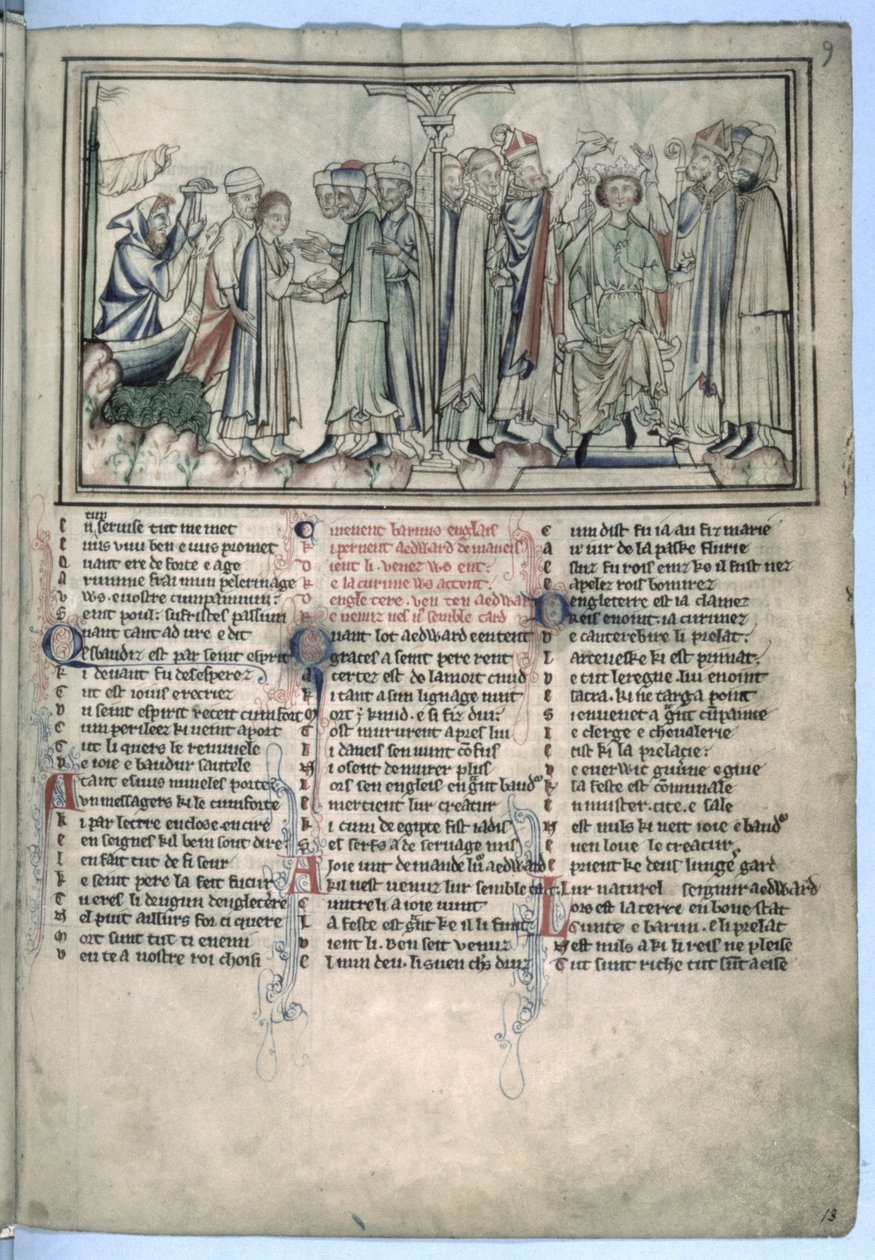 9
tur
En seruise tut me met
E uus vuu ben e uus promet
Quant ere de force e age
A rumme frai mun pelerinage
V us e uostre cumpainnun:
S eint poul: sufristes passiun
Quant ca out ad ure e dit
Esbaudiz est par seint esprit
K i deuant fu desesperez
T ut est iouis e rechez
D u seint espirit receit cumfort
C um perileez ki ueint a port
T ut li quers le renuuele
D e ioie e baudur sautele
Atant es uus nuueles porte
Vn messagers ki le cumforte
K i par lettre enclose en cire
E en seignes kil bem sout dire
L en fait tut de fi seur
K e seint pere la feit sucur
T u eres li dreiz dengletere
N el puit aillurs for ci quere
M ort sunt tut ti enemi
V eu te a nostre roi choisi
Ci uienent baruns engleis
K i pernent Aedward de maneis
D ient li. venez vus ent:
K e la curune vus atent.
D engletere. ven ten aedward
K e uenir nes u semble tard
Quant lot aedward e entent
Graces a seint pere rent
A certez est de la mort cnud
K i tant a sun lignage nuit
M ort y knud. e si fiz dui:
T ost mururent apres lui
L i daneis sen uunt cofus
N i osent demurer plus
L ors sen engleis en gnt baud
E mertient lur creatur
K i cum de egipte fist iadis
S es serfs a de seruage mis
A ioie unt demande lur aedward
Kil nest venuz lur semble tart
C untre li a ioie uunt
L A feste est gnt ke il li funt
D ient li. Ben seit venuz
E l nun deu. li suen chs druz
Cum dist fu ia au fiz marie
A u iur de la paske flurie
Beiz fu rois einz ke il fust nez
E apelez rois bonurez
D engleterre est ia clamez
Reis enoint. ia curunez
D e cantrebire li prelat:
L Arceueske ki est primat.
D e tut le regne. lui enoint
E sacra. ki ne targa point
S i enuenet a gnt cumpainie
D e clergie e cheualerie
C ist ki la prelacie:
D e euerwic guuerne e guie
K e la feste est communale
E n muster. cite. e sale
N est nuls ki neit ioie e baud
E uen loue le creatur
E prient ke deus lunges gard
Lur naturel seignur aedward
Lors est la terre en bone stat
C unte e barun. e li prelat
N est nuls a ki li reis ne pleise
T ut sunt riche tut sunt a eise
13